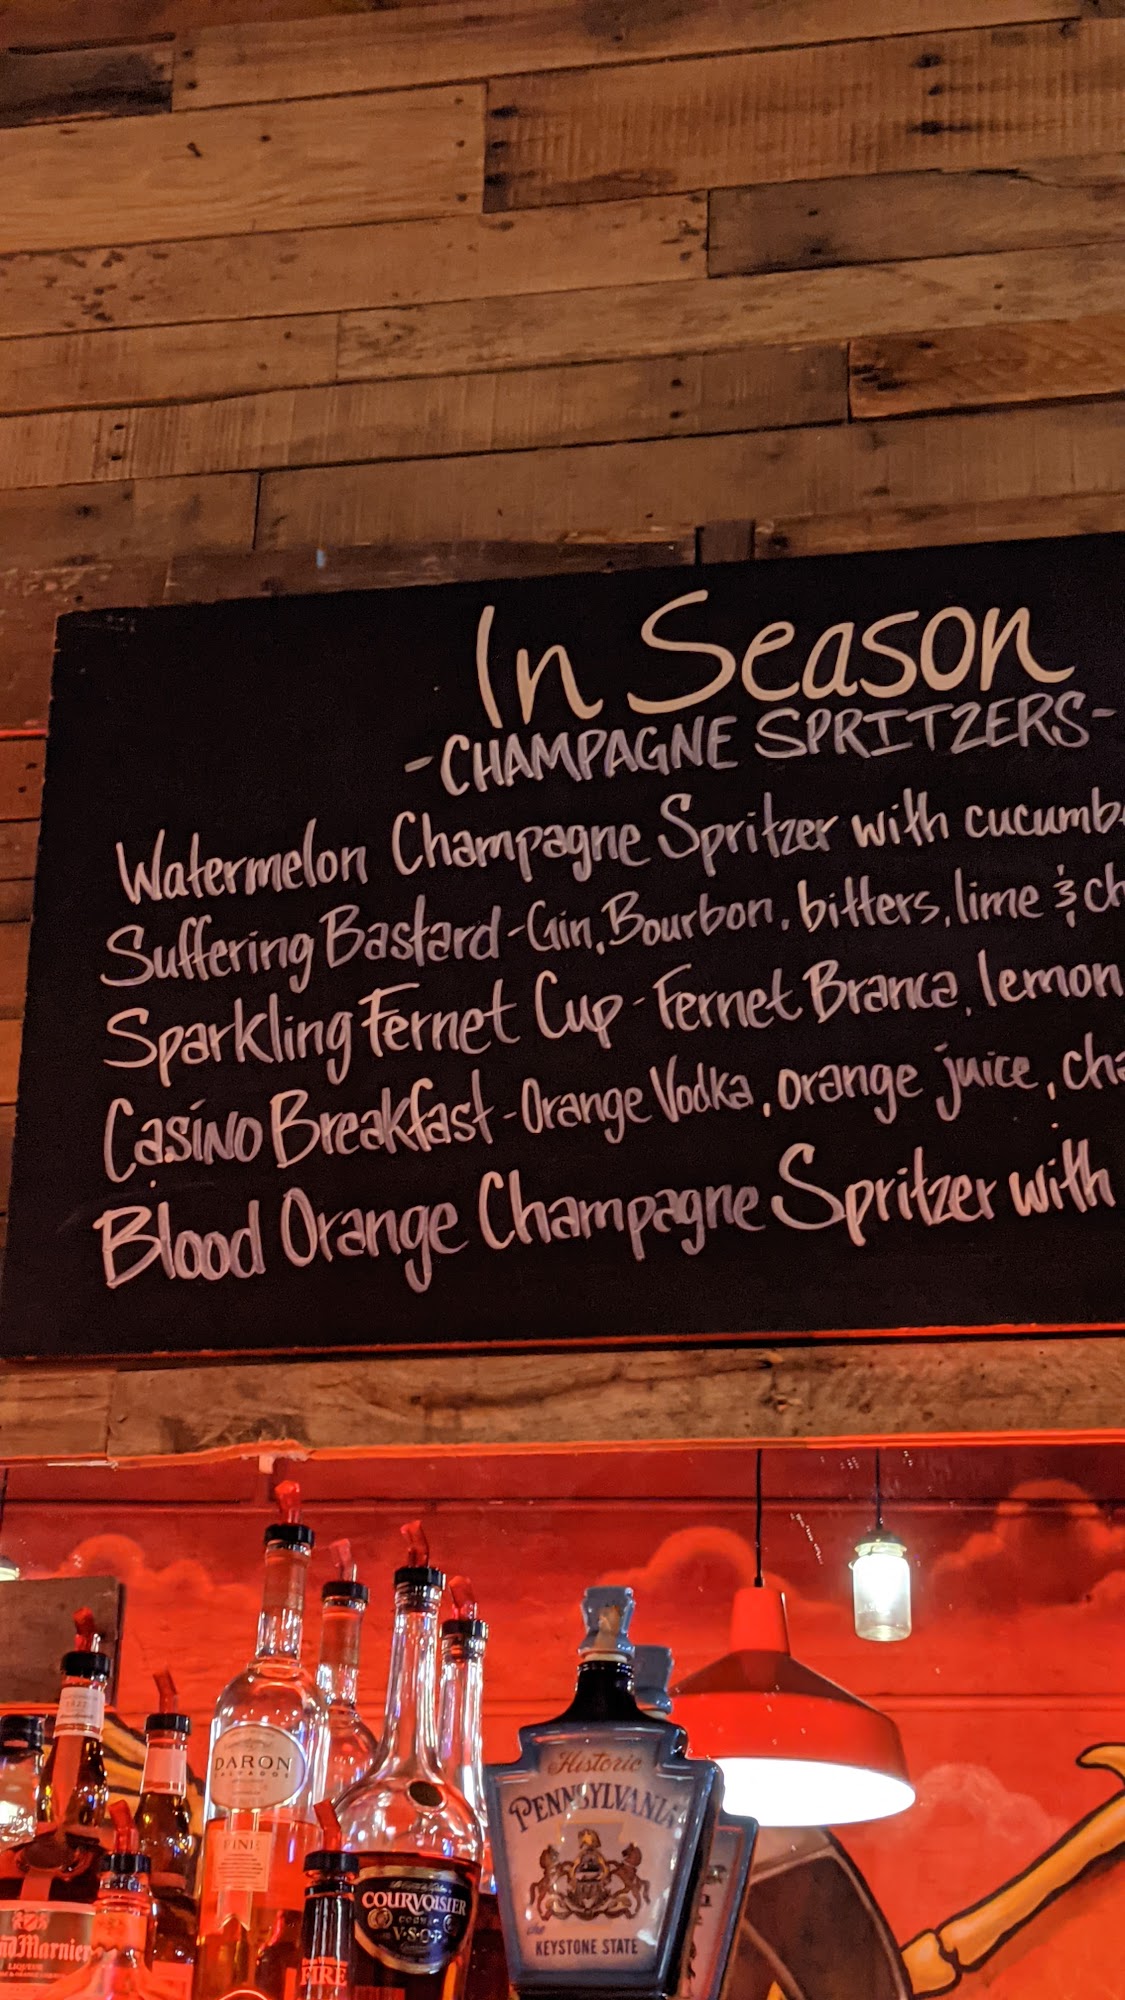 In Season
-CHAMPAGNE SPRITZERS-
Watermelon Champagne Spritzer with cucumb
Suffering Bastard - Gin, Bourbon, bitters, lime & ch
Sparkling Fernet Cup - Fernet Branca, lemon
Casino Breakfast - Orange Vodka, orange juice, cha
Blood Orange Champagne Spritzer with
DARON
CALVADOS
FINE
COURVOISIER
COGNAC
V·S·O·P
Historic
PENNSYLVANIA
the
KEYSTONE STATE
ndMarnier
LIQUEUR
FIRE